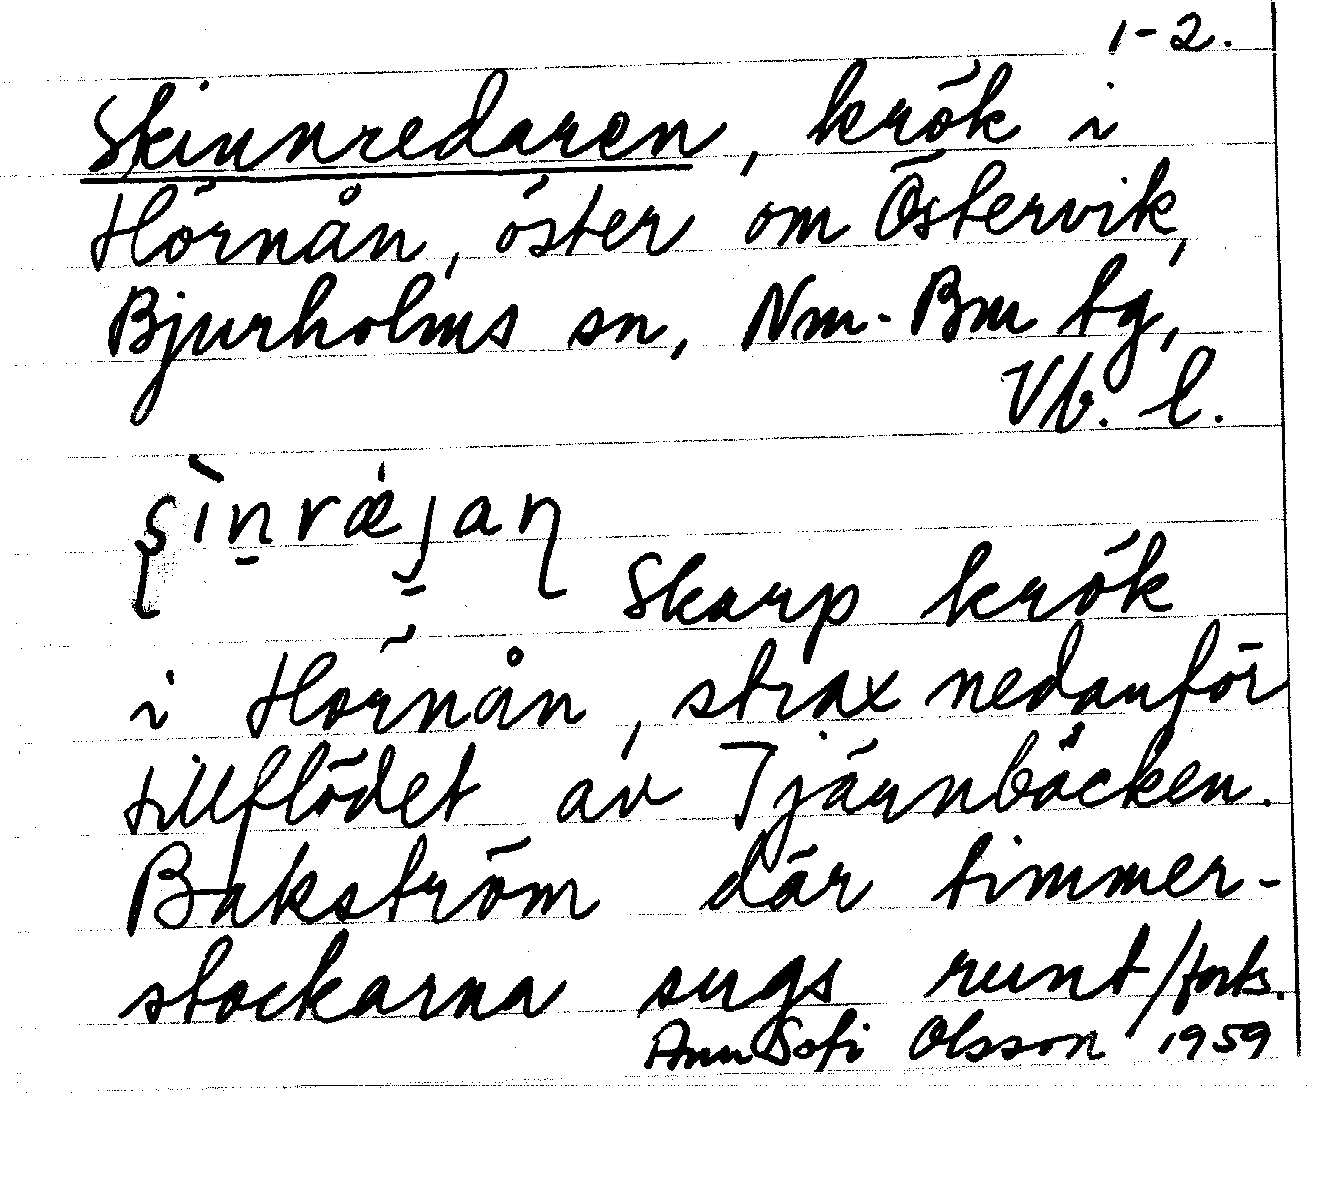 1-2.
Skinnredaren, krök i
Hörnån, öster om Östervik,
Bjurholms sn, Nm-Bm tg,
Vb. l.
Skarp krök
i Hörnån, strax nedanför
tillflödet av Tjärnbäcken.
Bakström där timmer-
stockarna sugs runt /forts.
Ann Sofi Olsson 1959